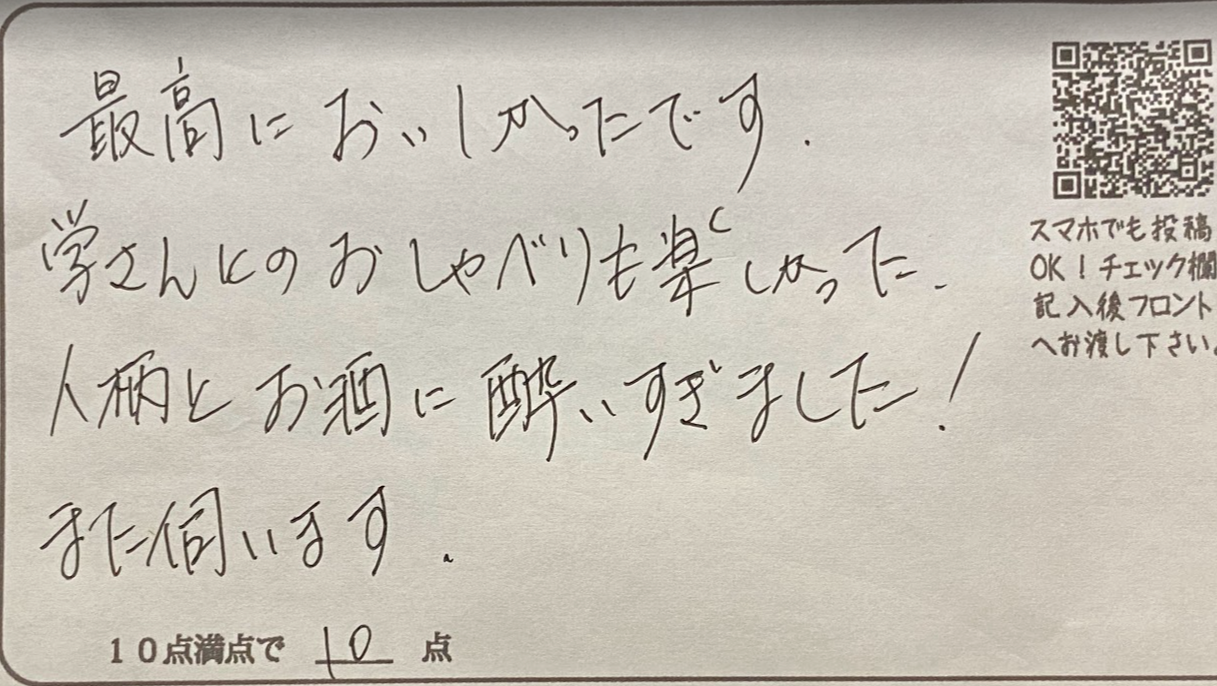 最高においしかったです.
学さんとのおしゃべりも楽しかった.
人柄とお酒に酔いすぎました!
また伺います.
10点満点で 10 点
スマホでも投稿
OK!チェック欄
記入後フロント
へお渡し下さい。